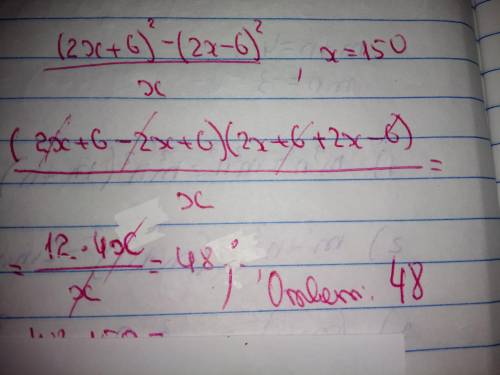 (2x+6)² - (2x-6)² / x , x=150
(2x+6-2x+6)(2x+6+2x-6) / x =
= 12·4x / x = 48 ;
Ответ: 48